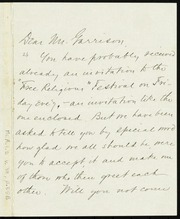 Dear Mr. Garrison
"You have probably received
already an invitation to the
"Free Religious" Festival on Fri-
day eve'g, - an invitation like the
one enclosed. But we have been
asked to tell you by special mes-
how glad we all should be were
you to accept it and make one
of those who then greet each
other. Will you not come